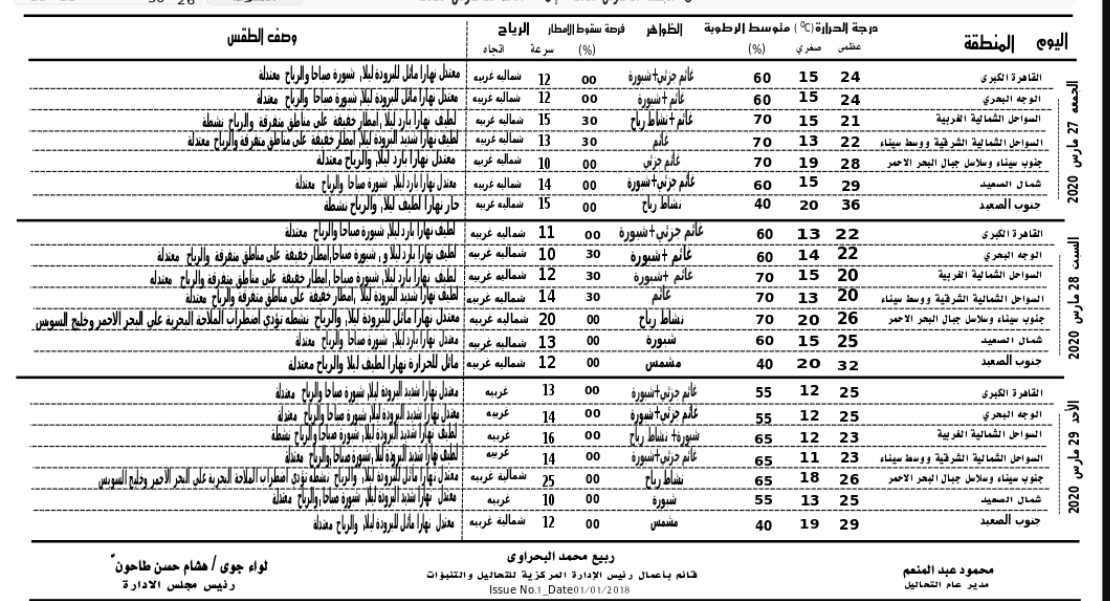 اليوم المنطقة درجة الحرارة (ºC) متوسط الرطوبة الظواهر فرصة سقوط الامطار الرياح وصف الطقس
عظمى صغري (%) (%) سرعة اتجاه
الجمعه 27 مارس 2020
القاهرة الكبرى 24 15 60 غائم جزئي+شبورة 00 12 شماليه غربيه معتدل نهارا مائل للبرودة ليلا, شبورة صباحا والرياح معتدلة
الوجه البحري 24 15 60 غائم +شبورة 00 12 شماليه غربيه معتدل نهارا مائل للبرودة ليلا, شبورة صباحا والرياح معتدلة
السواحل الشمالية الغربية 21 15 70 غائم +نشاط رياح 30 15 شماليه غربيه لطيف نهارا بارد ليلا ,امطار خفيفة على مناطق متفرقة والرياح نشطة
السواحل الشمالية الشرقية ووسط سيناء 22 13 70 غائم 30 13 شماليه غربيه لطيف نهارا شديد البرودة ليلا, امطار خفيفة على مناطق متفرقة والرياح معتدلة
جنوب سيناء وسلاسل جبال البحر الاحمر 28 19 70 غائم جزئي 00 10 شماليه غربيه معتدل نهارا بارد ليلا, والرياح معتدلة
شمال الصعيد 29 15 60 غائم جزئي+شبورة 00 14 شماليه غربيه معتدل نهارا بارد ليلا, شبورة صباحا والرياح معتدلة
جنوب الصعيد 36 20 40 نشاط رياح 00 15 شماليه غربيه حار نهارا لطيف ليلا, والرياح نشطة
السبت 28 مارس 2020
القاهرة الكبرى 22 13 60 غائم جزئي+شبورة 00 11 شماليه غربيه لطيف نهارا بارد ليلا, شبورة صباحا والرياح معتدلة
الوجه البحري 22 14 60 غائم +شبورة 30 10 شماليه غربيه لطيف نهارا بارد ليلا و , شبورة صباحا,امطار خفيفة على مناطق متفرقة والرياح معتدلة
السواحل الشمالية الغربية 20 15 70 غائم +شبورة 30 12 شماليه غربيه لطيف نهارا بارد ليلا, شبورة صباحا,امطار خفيفة على مناطق متفرقة والرياح معتدله
السواحل الشمالية الشرقية ووسط سيناء 20 13 70 غائم 30 14 شماليه غربيه لطيف نهارا شديد البرودة ليلا ,امطار خفيفة على مناطق متفرقة والرياح معتدلة
جنوب سيناء وسلاسل جبال البحر الاحمر 26 20 70 نشاط رياح 00 20 شماليه غربيه معتدل نهارا مائل للبرودة ليلا, والرياح نشطه تؤدي اضطراب الملاحة البحرية علي البحر الاحمر وخليج السويس
شمال الصعيد 25 15 60 شبورة 00 13 شماليه غربيه معتدل نهارا بارد ليلا, شبورة صباحا والرياح معتدلة
جنوب الصعيد 32 20 40 مشمس 00 12 شماليه غربيه مائل للحرارة نهارا لطيف ليلا والرياح معتدلة
الأحد 29 مارس 2020
القاهرة الكبرى 25 12 55 غائم جزئي+شبورة 00 13 غربيه معتدل نهارا شديد البرودة ليلا, شبورة صباحا والرياح معتدلة
الوجه البحري 25 12 55 غائم جزئي+شبورة 00 14 غربيه معتدل نهارا شديد البرودة ليلا, شبورة صباحا والرياح معتدلة
السواحل الشمالية الغربية 23 12 65 شبورة+ نشاط رياح 00 16 غربيه لطيف نهارا شديد البرودة ليلا, شبورة صباحا والرياح نشطة
السواحل الشمالية الشرقية ووسط سيناء 23 11 65 غائم جزئي+شبورة 00 14 غربيه لطيف نهارا شديد البرودة ليلا ,شبورة صباحا,والرياح معتدلة
جنوب سيناء وسلاسل جبال البحر الاحمر 26 18 65 نشاط رياح 00 25 شمالية غربية معتدل نهارا مائل للبرودة ليلا, والرياح نشطه تؤدي اضطراب الملاحة البحرية علي البحر الاحمر وخليج السويس
شمال الصعيد 25 13 55 شبورة 00 10 غربيه معتدل نهارا شديد البرودة ليلا, شبورة صباحا ,والرياح معتدلة
جنوب الصعيد 29 19 40 مشمس 00 12 شمالية غربيه معتدل نهارا مائل للبرودة ليلا, والرياح معتدلة
محمود عبد المنعم
مدير عام التحاليل
ربيع محمد البحراوى
قائم باعمال رئيس الإدارة المركزية للتحاليل والتنبؤات
Issue No.1_Date01/01/2018
لواء جوى / هشام حسن طاحون
رئيس مجلس الادارة